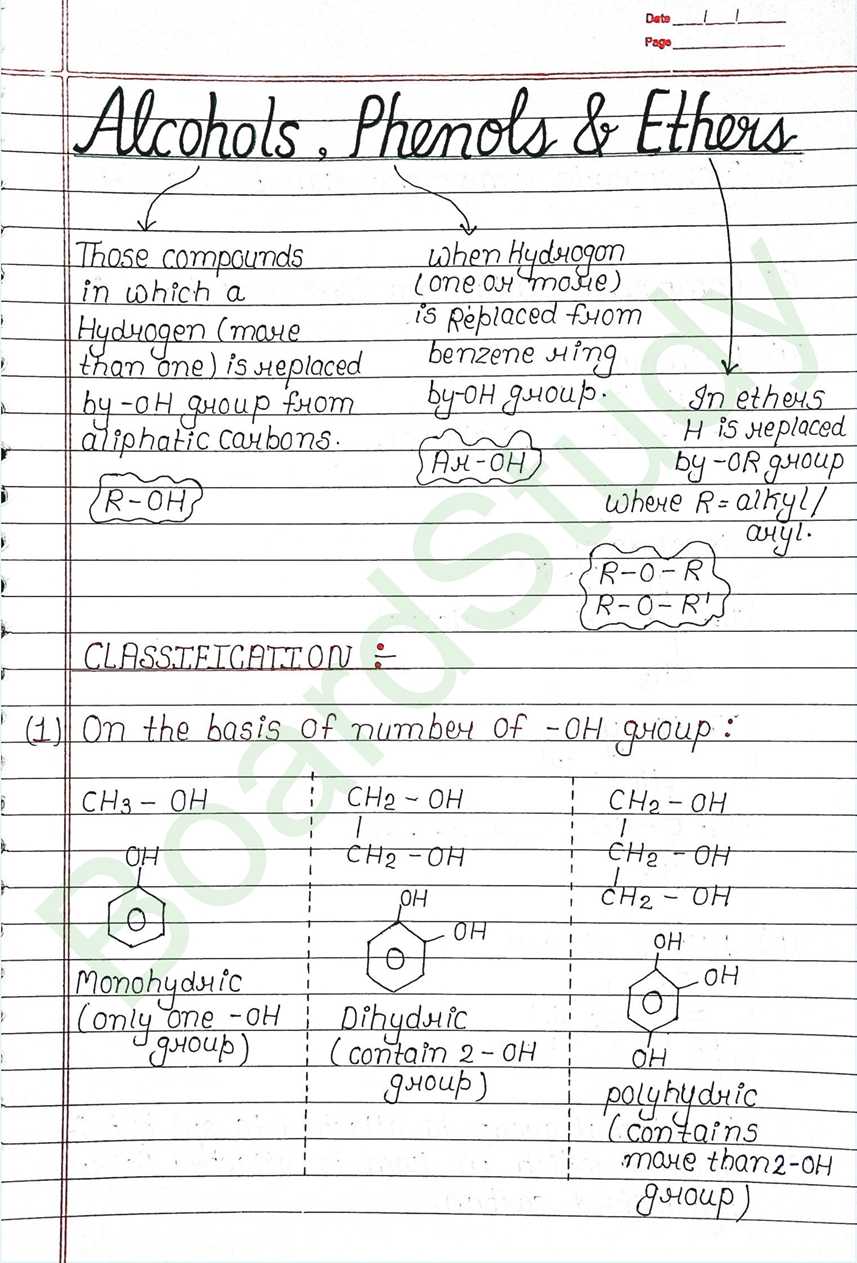 Date / /
Page
Alcohols, Phenols & Ethers
Those compounds
in which a
Hydrogen (more
than one) is replaced
by -OH group from
aliphatic carbons.
R-OH
when Hydrogon
(one or more)
is Replaced from
benzene ring
by-OH group.
Ar-OH
In ethers
H is replaced
by -OR group
where R = alkyl/
aryl.
R-O-R
R-O-R'
CLASSIFICATION :-
(1) On the basis of number of -OH group :
CH3 - OH
OH
Monohydric
(only one -OH
group)
CH2 - OH
CH2 - OH
OH
OH
Dihydric
(contain 2 - OH
group)
CH2 - OH
CH2 - OH
CH2 - OH
OH
OH
OH
polyhydric
(contains
more than 2-OH
group)
BoardStudy